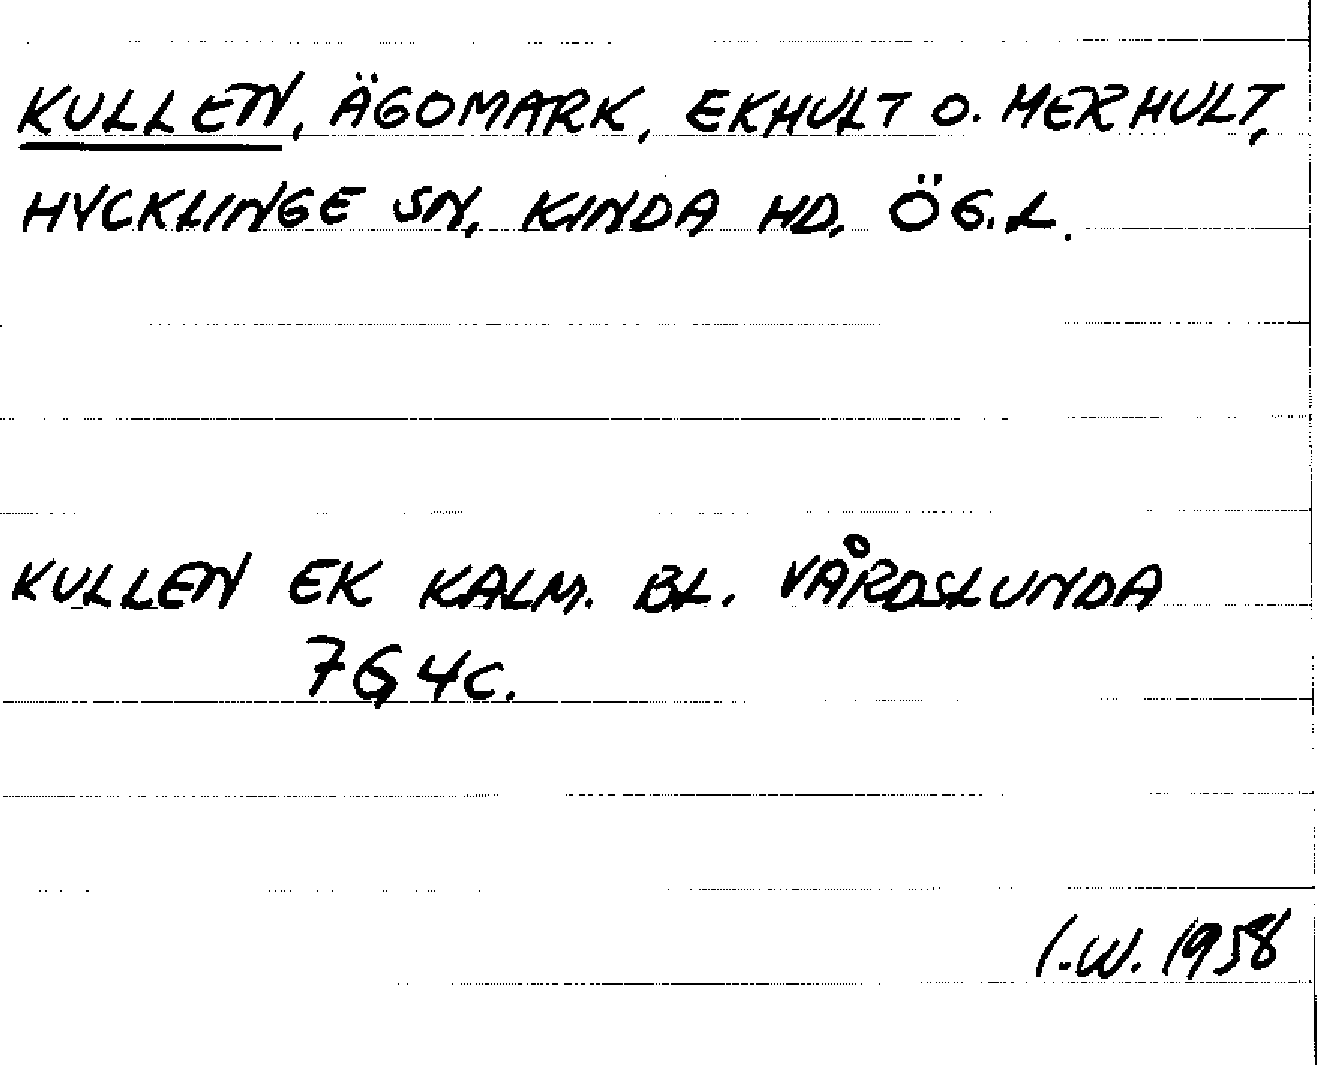 KULLEN, ÄGOMARK, EKHULT O. MERHULT,
HYCKLINGE SN, KINDA HD, ÖG.L.
KULLEN EK KALM. BL. VÅRDSLUNDA
7G,4C.
I.W. 1958